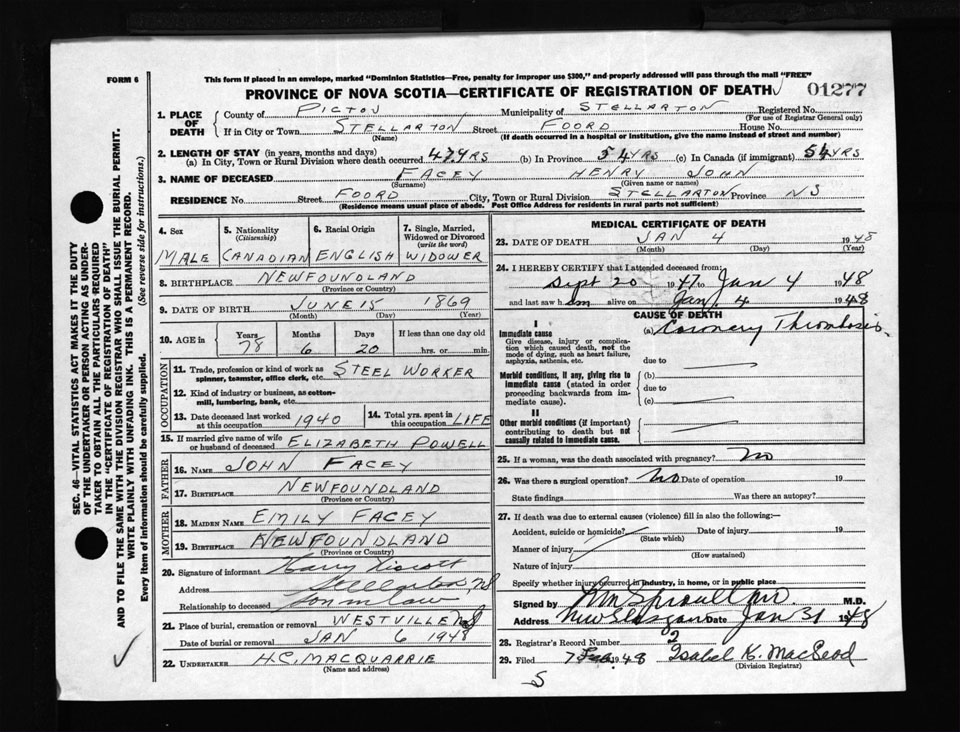 FORM 6
This form if placed in an envelope, marked "Dominion Statistics—Free, penalty for improper use $300," and properly addressed will pass through the mail "FREE"
PROVINCE OF NOVA SCOTIA—CERTIFICATE OF REGISTRATION OF DEATH 01277
1. PLACE OF DEATH County of PICTOU Municipality of STELLARTON Registered No.
(For use of Registrar General only)
If in City or Town STELLARTON Street FOORD House No.
(Name) (If death occurred in a hospital or institution, give the name instead of street and number)
2. LENGTH OF STAY (in years, months and days)
(a) In City, Town or Rural Division where death occurred 47 YRS (b) In Province 54 YRS (c) In Canada (if immigrant) 54 YRS
3. NAME OF DECEASED FACEY HENRY JOHN
(Surname) (Given name or names)
RESIDENCE No. Street FOORD City, Town or Rural Division STELLARTON Province NS
(Residence means usual place of abode. Post Office Address for residents in rural parts not sufficient)
SEC. 46—VITAL STATISTICS ACT MAKES IT THE DUTY
OF THE UNDERTAKER OR PERSON ACTING AS UNDER-
TAKER TO OBTAIN ALL THE PARTICULARS REQUIRED
IN THE "CERTIFICATE OF REGISTRATION OF DEATH"
AND TO FILE THE SAME WITH THE DIVISION REGISTRAR WHO SHALL ISSUE THE BURIAL PERMIT.
WRITE PLAINLY WITH UNFADING INK. THIS IS A PERMANENT RECORD.
Every item of information should be carefully supplied. (See reverse side for instructions.)
4. Sex 5. Nationality (Citizenship) 6. Racial Origin 7. Single, Married, Widowed or Divorced (write the word)
MALE CANADIAN ENGLISH WIDOWER
8. BIRTHPLACE NEWFOUNDLAND
(Province or Country)
9. DATE OF BIRTH JUNE 15 1869
(Month) (Day) (Year)
10. AGE in Years Months Days If less than one day old
78 6 20 hrs. or min.
OCCUPATION
11. Trade, profession or kind of work as spinner, teamster, office clerk, etc. STEEL WORKER
12. Kind of industry or business, as cotton-mill, lumbering, bank, etc.
13. Date deceased last worked at this occupation 1940 14. Total yrs. spent in this occupation LIFE
15. If married give name of wife or husband of deceased ELIZABETH POWELL
FATHER
16. NAME JOHN FACEY
17. BIRTHPLACE NEWFOUNDLAND
(Province or Country)
MOTHER
18. MAIDEN NAME EMILY FACEY
19. BIRTHPLACE NEWFOUNDLAND
(Province or Country)
20. Signature of informant Harry
Address Stellarton, NS
Relationship to deceased Son in law
21. Place of burial, cremation or removal WESTVILLE NS
Date of burial or removal JAN 6 1948
22. UNDERTAKER H.C. MACQUARRIE
(Name and address)
MEDICAL CERTIFICATE OF DEATH
23. DATE OF DEATH JAN 4 1948
(Month) (Day) (Year)
24. I HEREBY CERTIFY that I attended deceased from:
Sept 20 1947 to Jan 4 1948
and last saw him alive on Jan. 4 1948
CAUSE OF DEATH
I
Immediate cause (a) Coronary Thrombosis
Give disease, injury or complication which caused death, not the mode of dying, such as heart failure, asphyxia, asthenia, etc.
due to
Morbid conditions, if any, giving rise to immediate cause (stated in order proceeding backwards from immediate cause). (b)
due to
(c)
II
Other morbid conditions (if important) contributing to death but not causally related to immediate cause.
25. If a woman, was the death associated with pregnancy? No
26. Was there a surgical operation? No Date of operation 19
State findings Was there an autopsy?
27. If death was due to external causes (violence) fill in also the following:—
Accident, suicide or homicide? Date of injury 19
(State which)
Manner of injury
(How sustained)
Nature of injury
Specify whether injury occurred in industry, in home, or in public place
Signed by M.D.
Address New Glasgow Date Jan 31 1948
28. Registrar's Record Number 2
29. Filed 7 Feb. 1948 Isabel K. MacLeod
(Division Registrar)
S